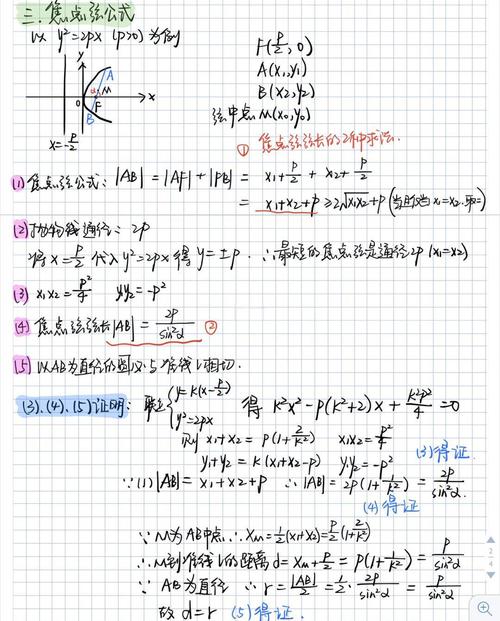 三.焦点弦公式
以 y²=2px (p>0) 为例
F(p/2, 0)
A(x₁,y₁)
B(x₂,y₂)
弦中点M(x₀,y₀)
y
A
M
α
O
F
B
x
x=-p/2
① 焦点弦弦长的2种求法.
(1) 焦点弦公式: |AB| = |AF|+|FB| = x₁+p/2 + x₂+p/2
= x₁+x₂+p ≥ 2√x₁x₂+p (当且仅当 x₁=x₂.取=)
(2) 抛物线通径: 2p
将 x=p/2 代入 y²=2px 得 y=±p. ∴最短的焦点弦是通径2p (x₁=x₂)
(3) x₁x₂=p²/4 y₁y₂=-p²
(4) 焦点弦弦长|AB| = 2p/sin²α ②
(5) 以AB为直径的圆 与准线l相切.
(3).(4).(5)证明: 联立{y=k(x-p/2) y²=2px 得 k²x²-p(k²+2)x+k²p²/4=0
则 x₁+x₂ = p(1+2/k²) x₁x₂=p²/4
y₁+y₂ = k(x₁+x₂-p) y₁y₂=-p² (3)得证
∵(1)|AB| = x₁+x₂+p ∴|AB| = 2p(1+1/k²) = 2p/sin²α.
(4)得证
∵M为AB中点 ∴xM=1/2(x₁+x₂)=p/2(1+2/k²)
∴M到准线l的距离 d=xM+p/2 = p(1+1/k²) = p/sin²α
∵AB为直径 ∴r=|AB|/2=1/2·2p/sin²α=p/sin²α
故 d=r (5)得证.
2
4